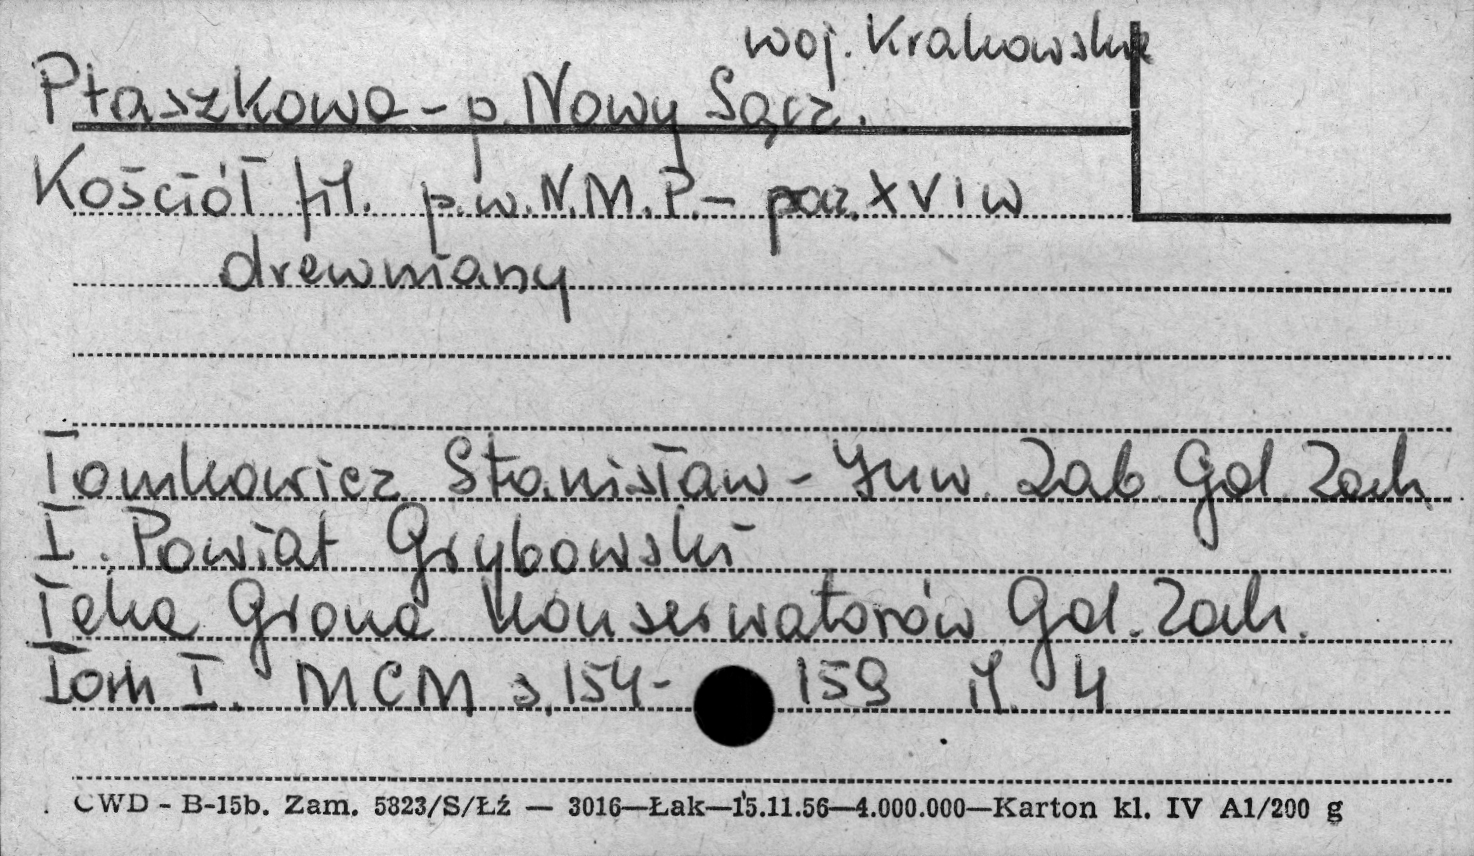 woj. Krakowskie
Ptaszkowa - p. Nowy Sącz.
Kościół fil. p.w. N.M.P. - pocz. XVI w
drewniany
Tomkowicz Stanisław - Inw. Zab. Gal. Zach.
I. Powiat Grybowski
Teka Grona Konserwatorów Gal. Zach.
Tom I. MCM s. 154 - 159 il. 4
CWD - B-15b. Zam. 5823/S/Łź — 3016—Łak—15.11.56—4.000.000—Karton kl. IV A1/200 g